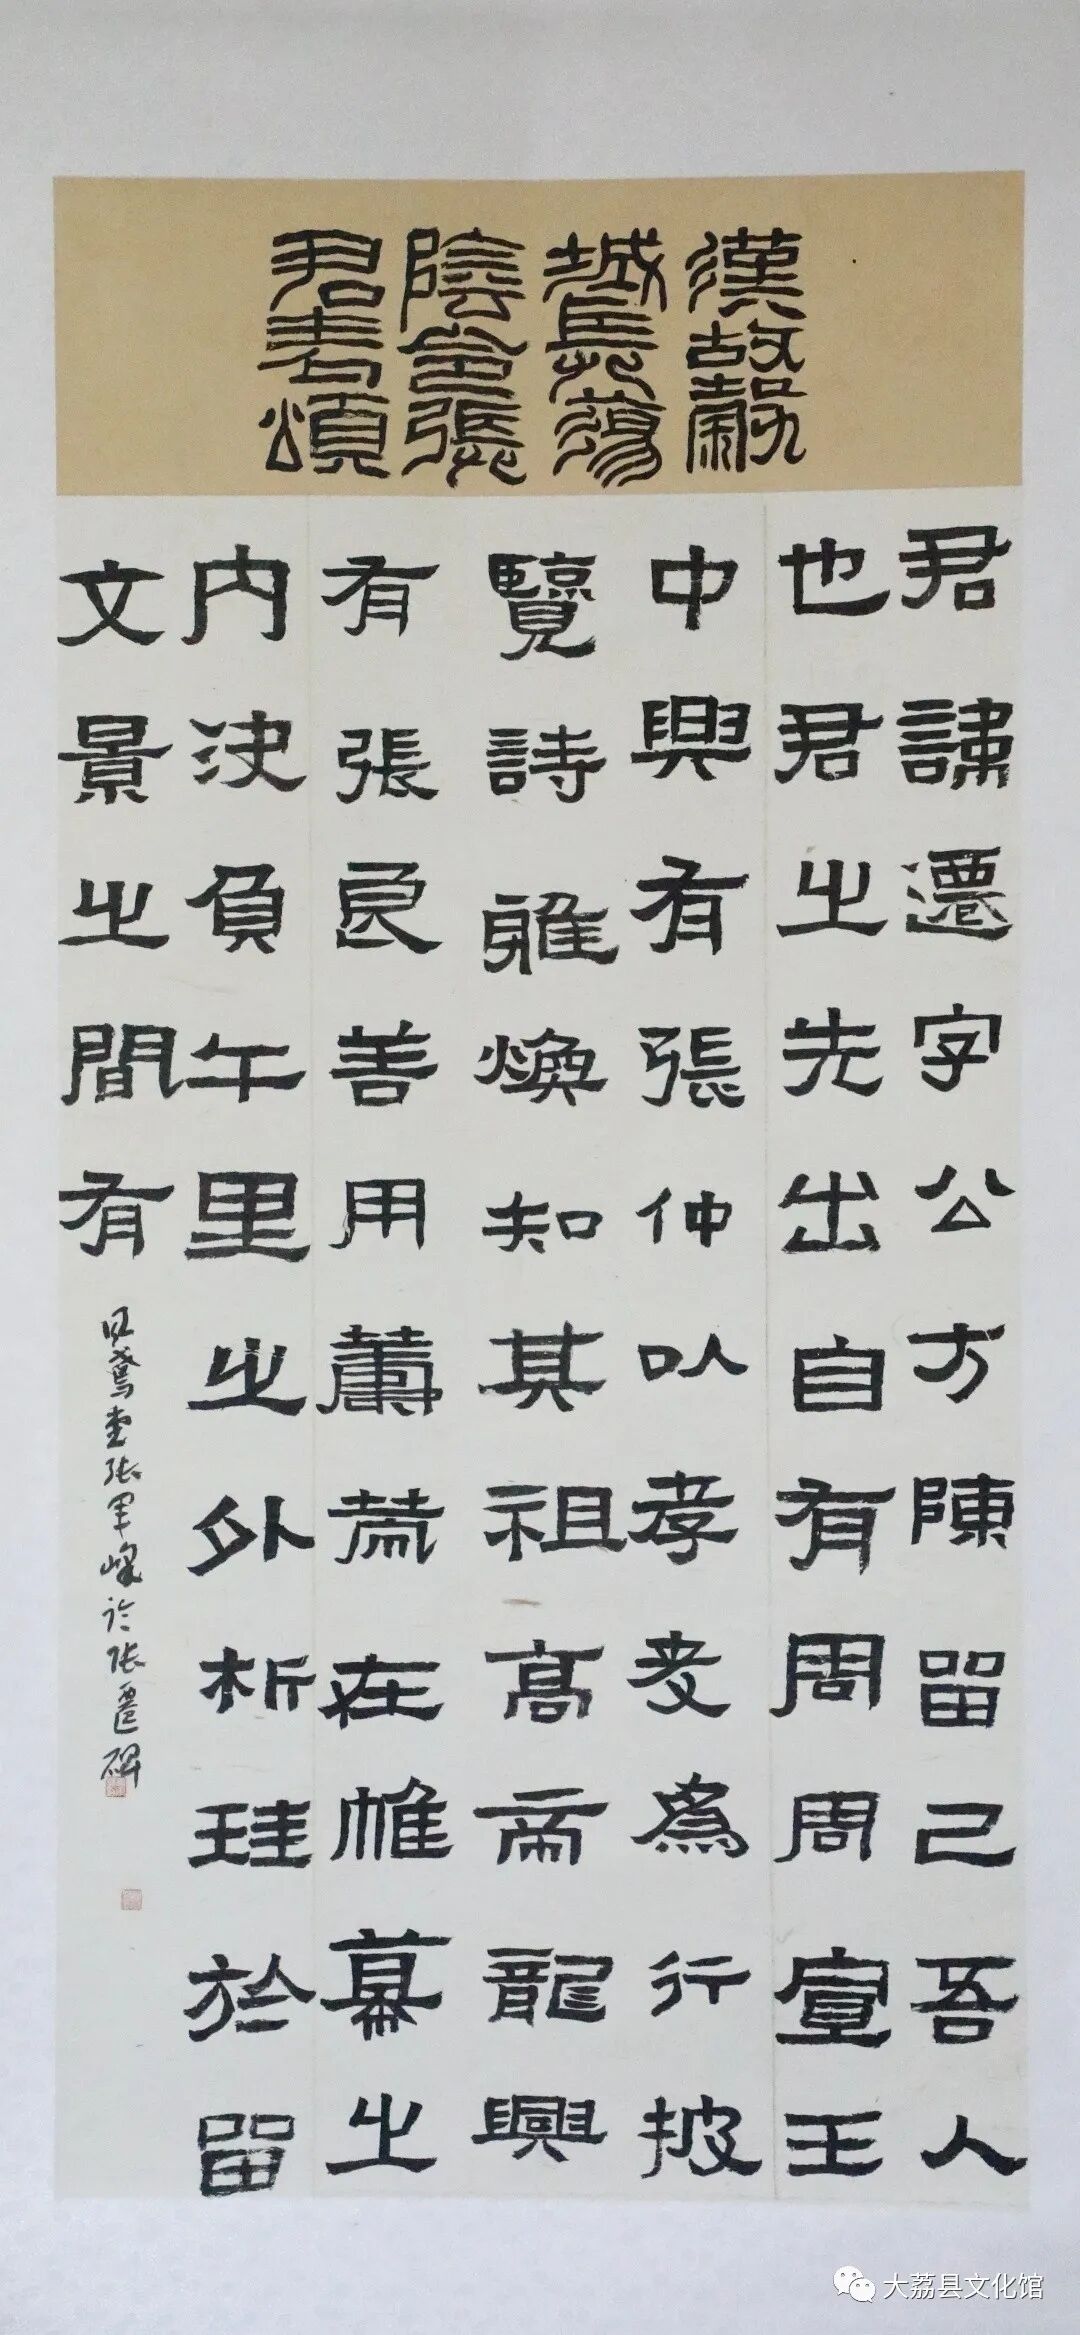 漢故穀
城長蕩
陰令張
君表頌
君諱遷字公方陳留己吾人
也君之先出自有周周宣王
中興有張仲以孝友爲行披
覽詩雅煥知其祖高帝龍興
有張良善用籌策在帷幕之
内決負午里之外析珪於留
文景之間有
堂张军峰临张遷碑
大荔县文化馆